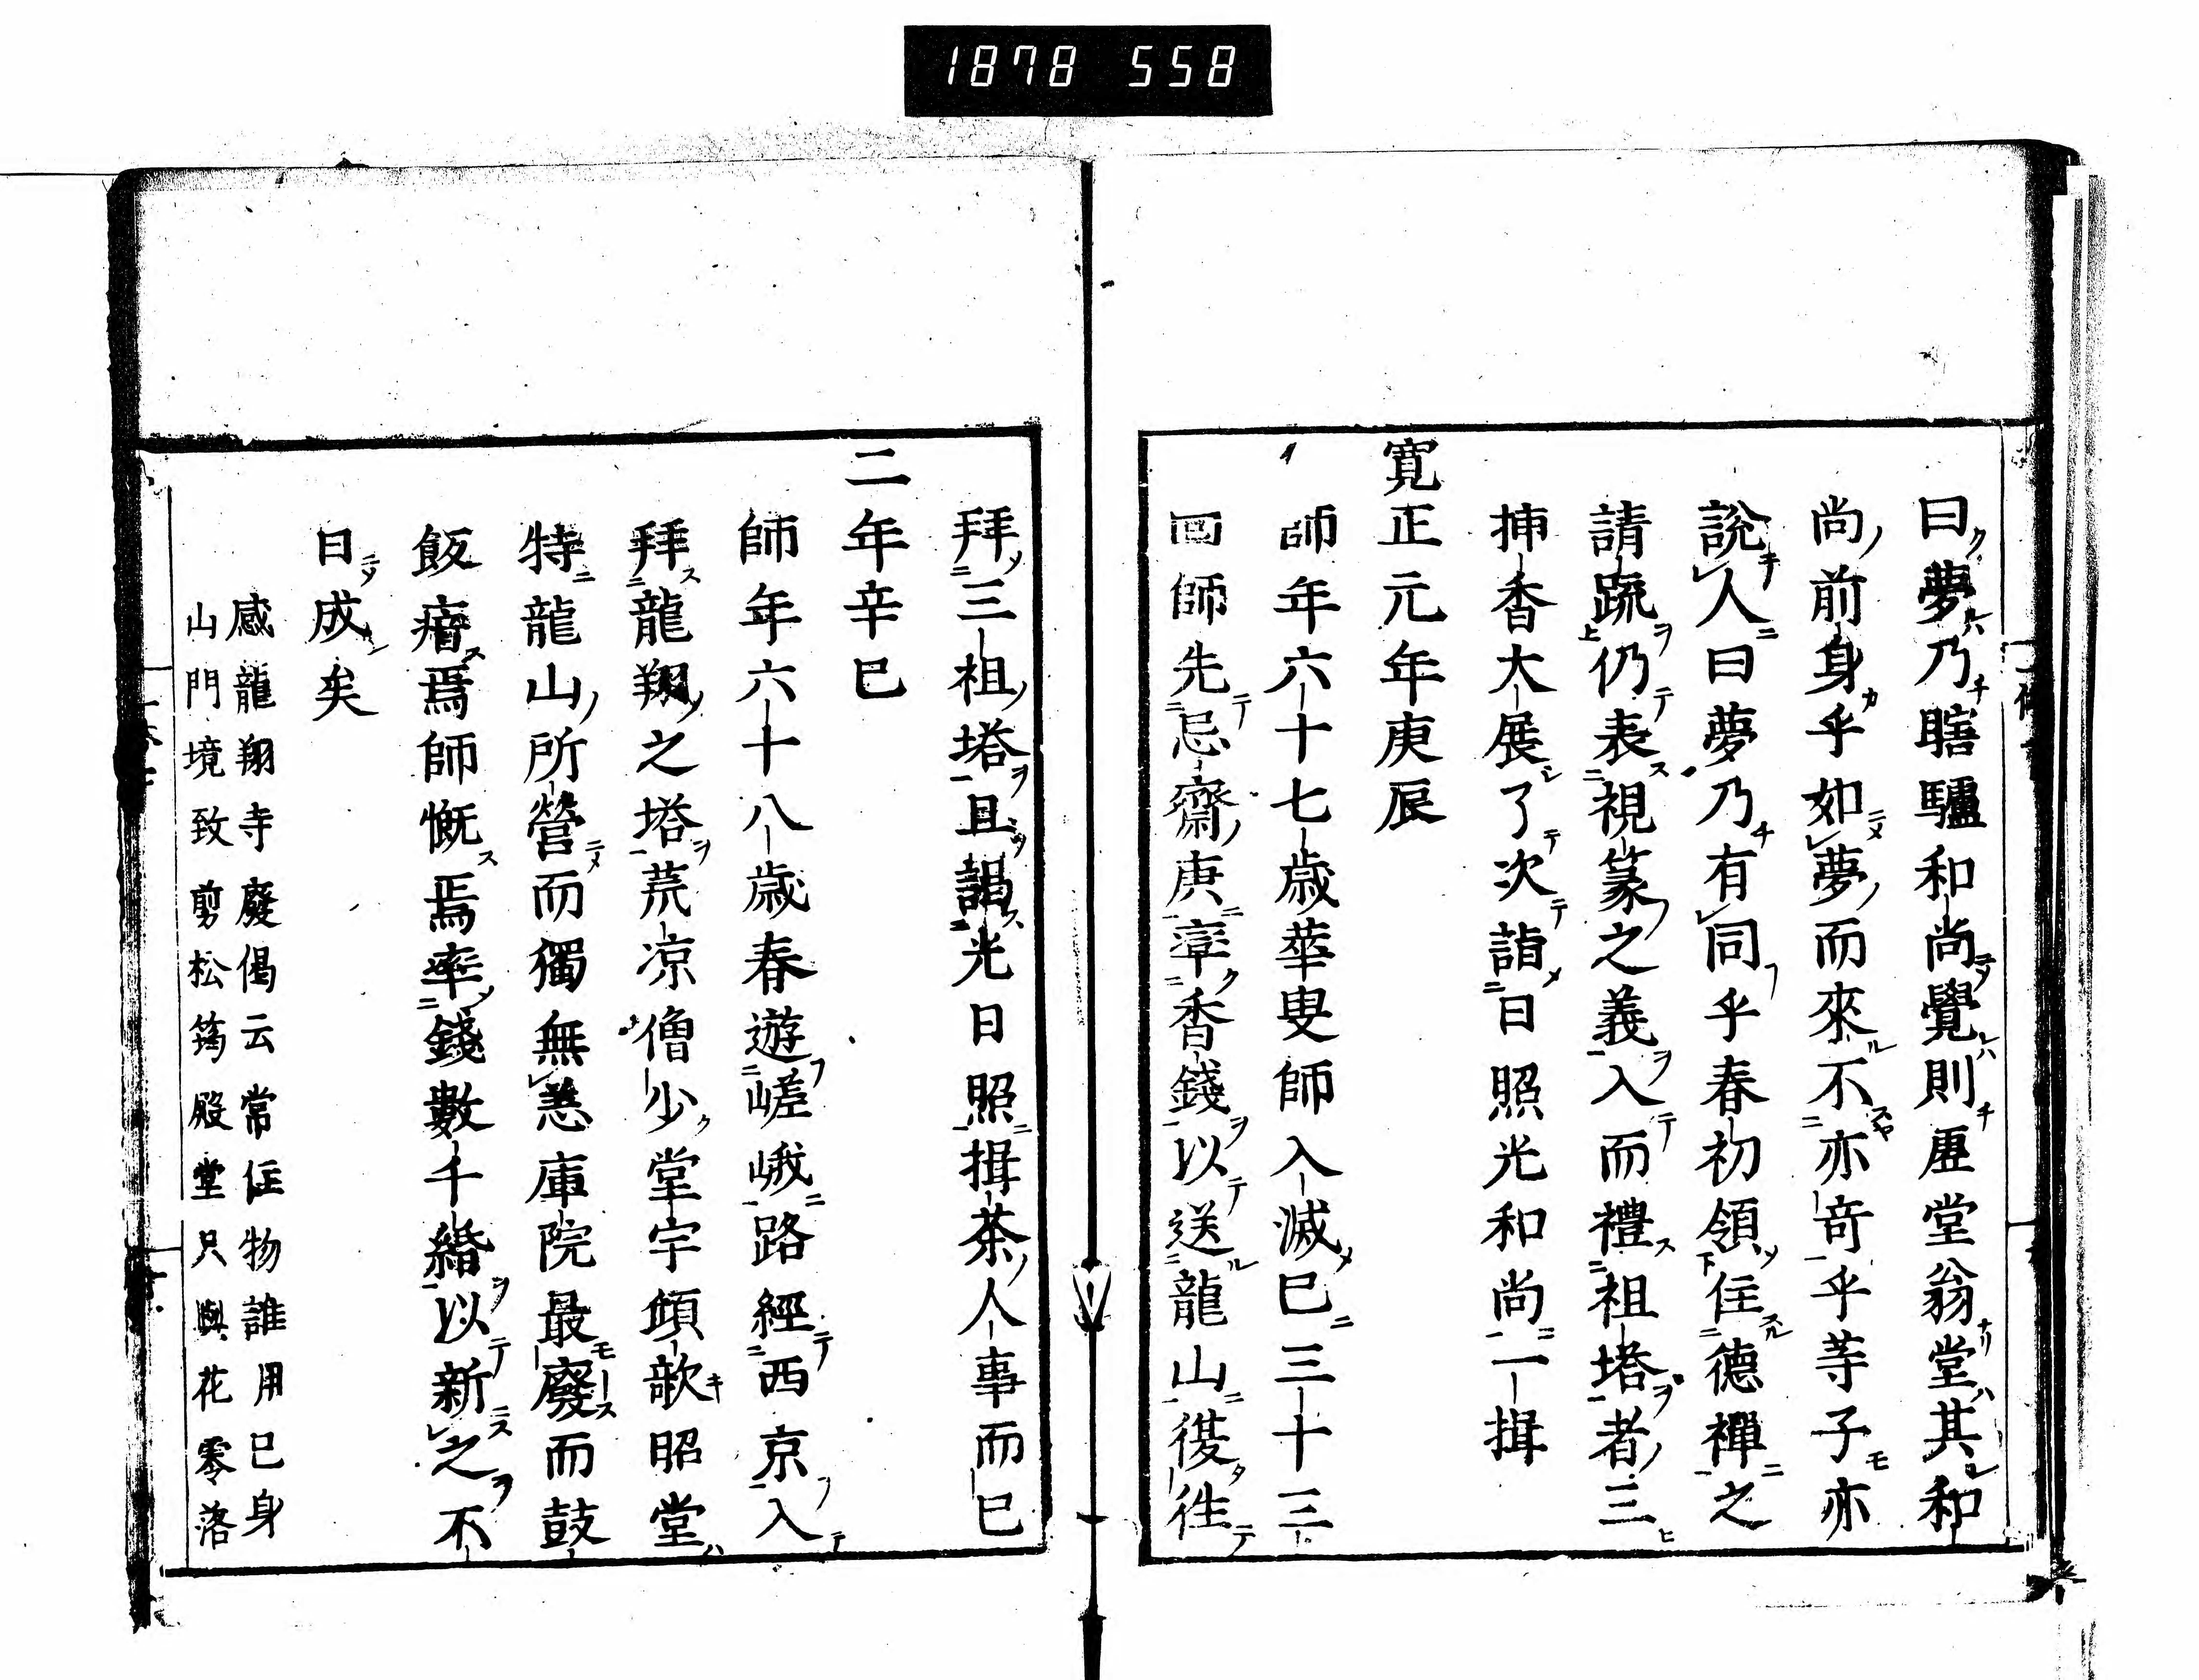 1878 558
曰夢乃瞎驢和尚覺則虛堂翁堂其和
尚前身乎如夢而來不亦奇乎等子亦
說人曰夢乃有同乎春初領住德禪之
請疏仍表視篆之義入而禮祖塔者三
揷香大展了次詣日照光和尚一揖
寬正元年庚辰
師年六十七歲華叟師入滅已三十三
回師先忌齋庚辛香錢以送龍山復往
拜三祖塔且謁光日照揖茶人事而已
二年辛巳
師年六十八歲春遊嵯峨路經西京入
拜龍翔之塔荒凉僧少堂宇傾欹昭堂
特龍山所營而獨無恙庫院最廢而鼓
飯瘖焉師慨焉率錢數千緡以新之不
日成矣
感龍翔寺廢偈云常住物誰用已身
山門境致剪松筠殿堂只與花零落